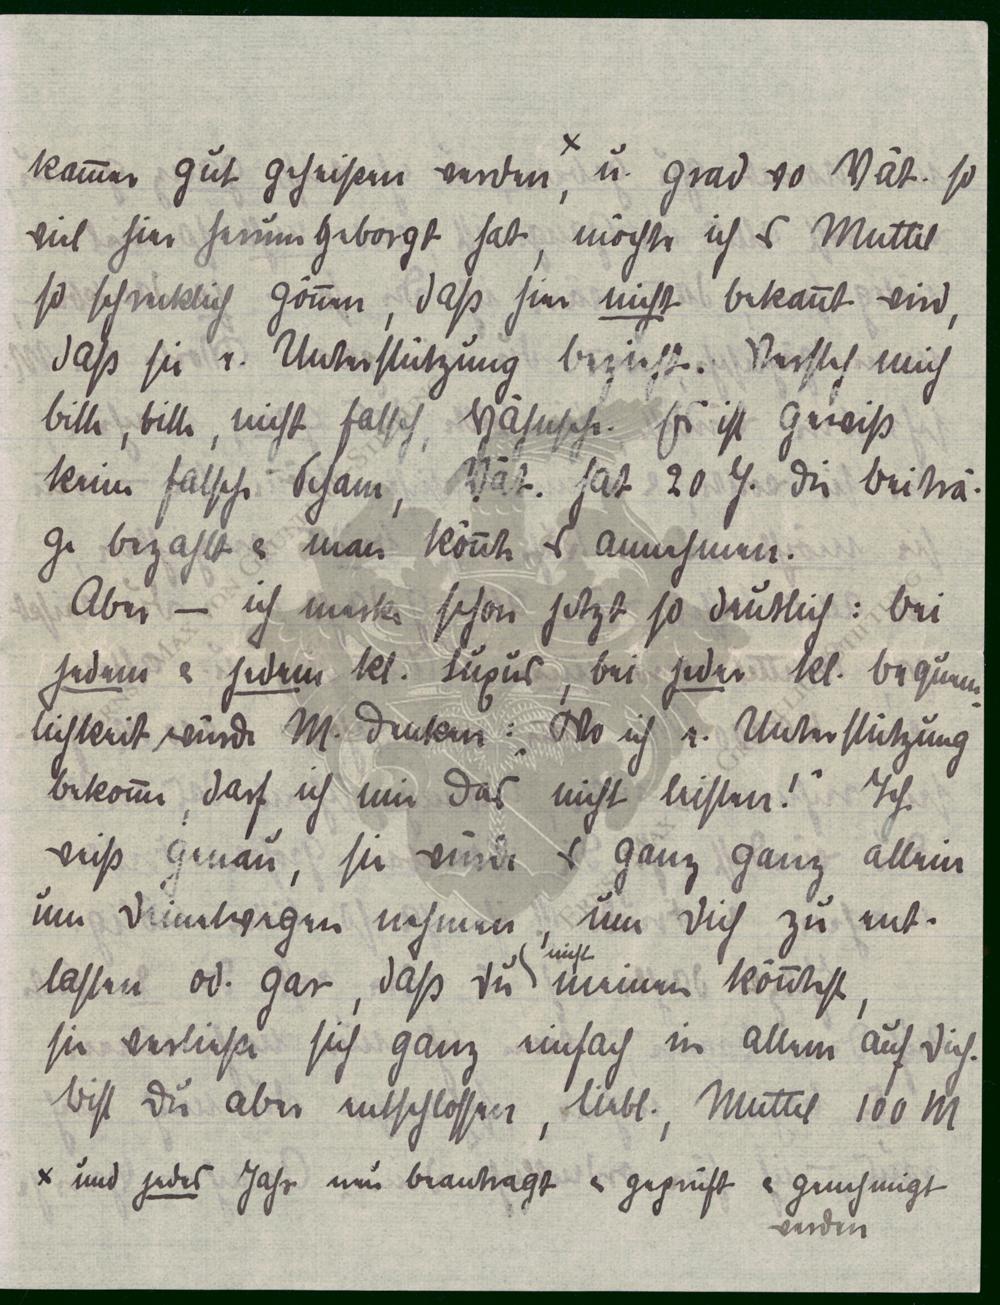 kam̅er gut geheißen werden,ˣ u. grad wo Vät. so
viel hier herum geborgt hat, möchte ich es Muttel
so schrecklich gön̅en, daß hier nicht bekan̅t wird,
daß sie e. Unterstützung bezieht. Versteh mich
bitte, bitte, nicht falsch, Es ist gewiß
keine falsche Scham, Vät. hat 20 J. die beiträ-
ge bezahlt & man kön̅te es annehmen.
Aber — ich merke schon jetzt so deutlich: bei
jedem & jedem kl. Luxus, bei jeder kl. bequem-
lichkeit würde M. denken: „Wo ich e. Unterstützung
bekom̅e, darf ich mir das nicht leisten!“ Ich
weiß genau, sie würde es ganz ganz allein
um deinetwegen nehmen, um dich zu ent-
lasten od. gar, daß du nicht meinen kön̅test,
sie verließe sich ganz einfach in allem auf dich.
bist du aber entschlossen, liebl., Muttel 100 M
x und jedes Jahr neu beantragt & geprüft & genehmigt
werden